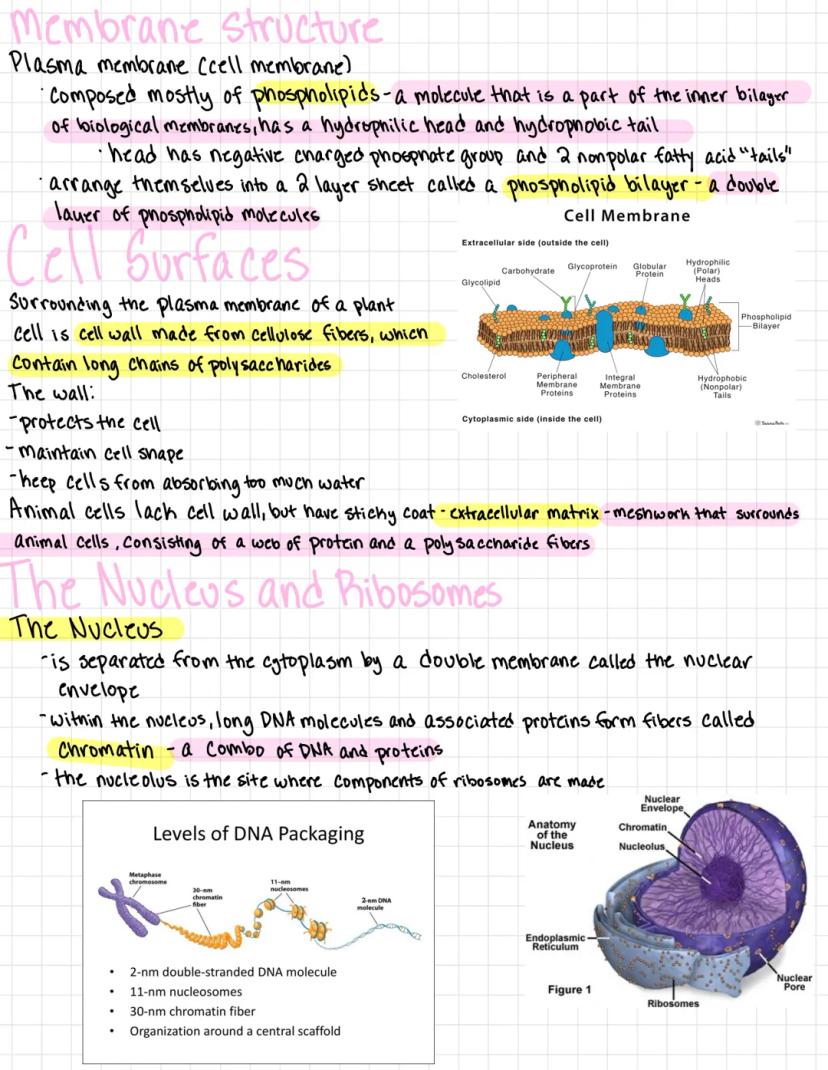 Membrane structure
Plasma membrane (cell membrane)
· composed mostly of phospholipids - a molecule that is a part of the inner bilayer
of biological membranes, has a hydrophilic head and hydrophobic tail
· head has negative charged phosphate group and 2 nonpolar fatty acid "tails"
· arrange themselves into a 2 layer sheet called a phospholipid bilayer - a double
layer of phospholipid molecules
Cell Membrane
Extracellular side (outside the cell)
Glycolipid
Carbohydrate
Glycoprotein
Globular
Protein
Hydrophilic
(Polar)
Heads
Phospholipid
Bilayer
Cholesterol
Peripheral
Membrane
Proteins
Integral
Membrane
Proteins
Hydrophobic
(Nonpolar)
Tails
Cytoplasmic side (inside the cell)
Cell Surfaces
Surrounding the plasma membrane of a plant
cell is cell wall made from cellulose fibers, which
contain long chains of polysaccharides
The wall:
- protects the cell
- maintain cell shape
- keep cells from absorbing too much water
Animal cells lack cell wall, but have sticky coat - extracellular matrix - meshwork that surrounds
animal cells, consisting of a web of protein and a polysaccharide fibers
The Nucleus and Ribosomes
The Nucleus
- is separated from the cytoplasm by a double membrane called the nuclear
envelope
- within the nucleus, long DNA molecules and associated proteins form fibers called
chromatin - a combo of DNA and proteins
- the nucleolus is the site where components of ribosomes are made
Levels of DNA Packaging
Metaphase
chromosome
30-nm
chromatin
fiber
11-nm
nucleosomes
2-nm DNA
molecule
• 2-nm double-stranded DNA molecule
• 11-nm nucleosomes
• 30-nm chromatin fiber
• Organization around a central scaffold
Anatomy
of the
Nucleus
Nuclear
Envelope
Chromatin
Nucleolus
Endoplasmic
Reticulum
Figure 1
Ribosomes
Nuclear
Pore